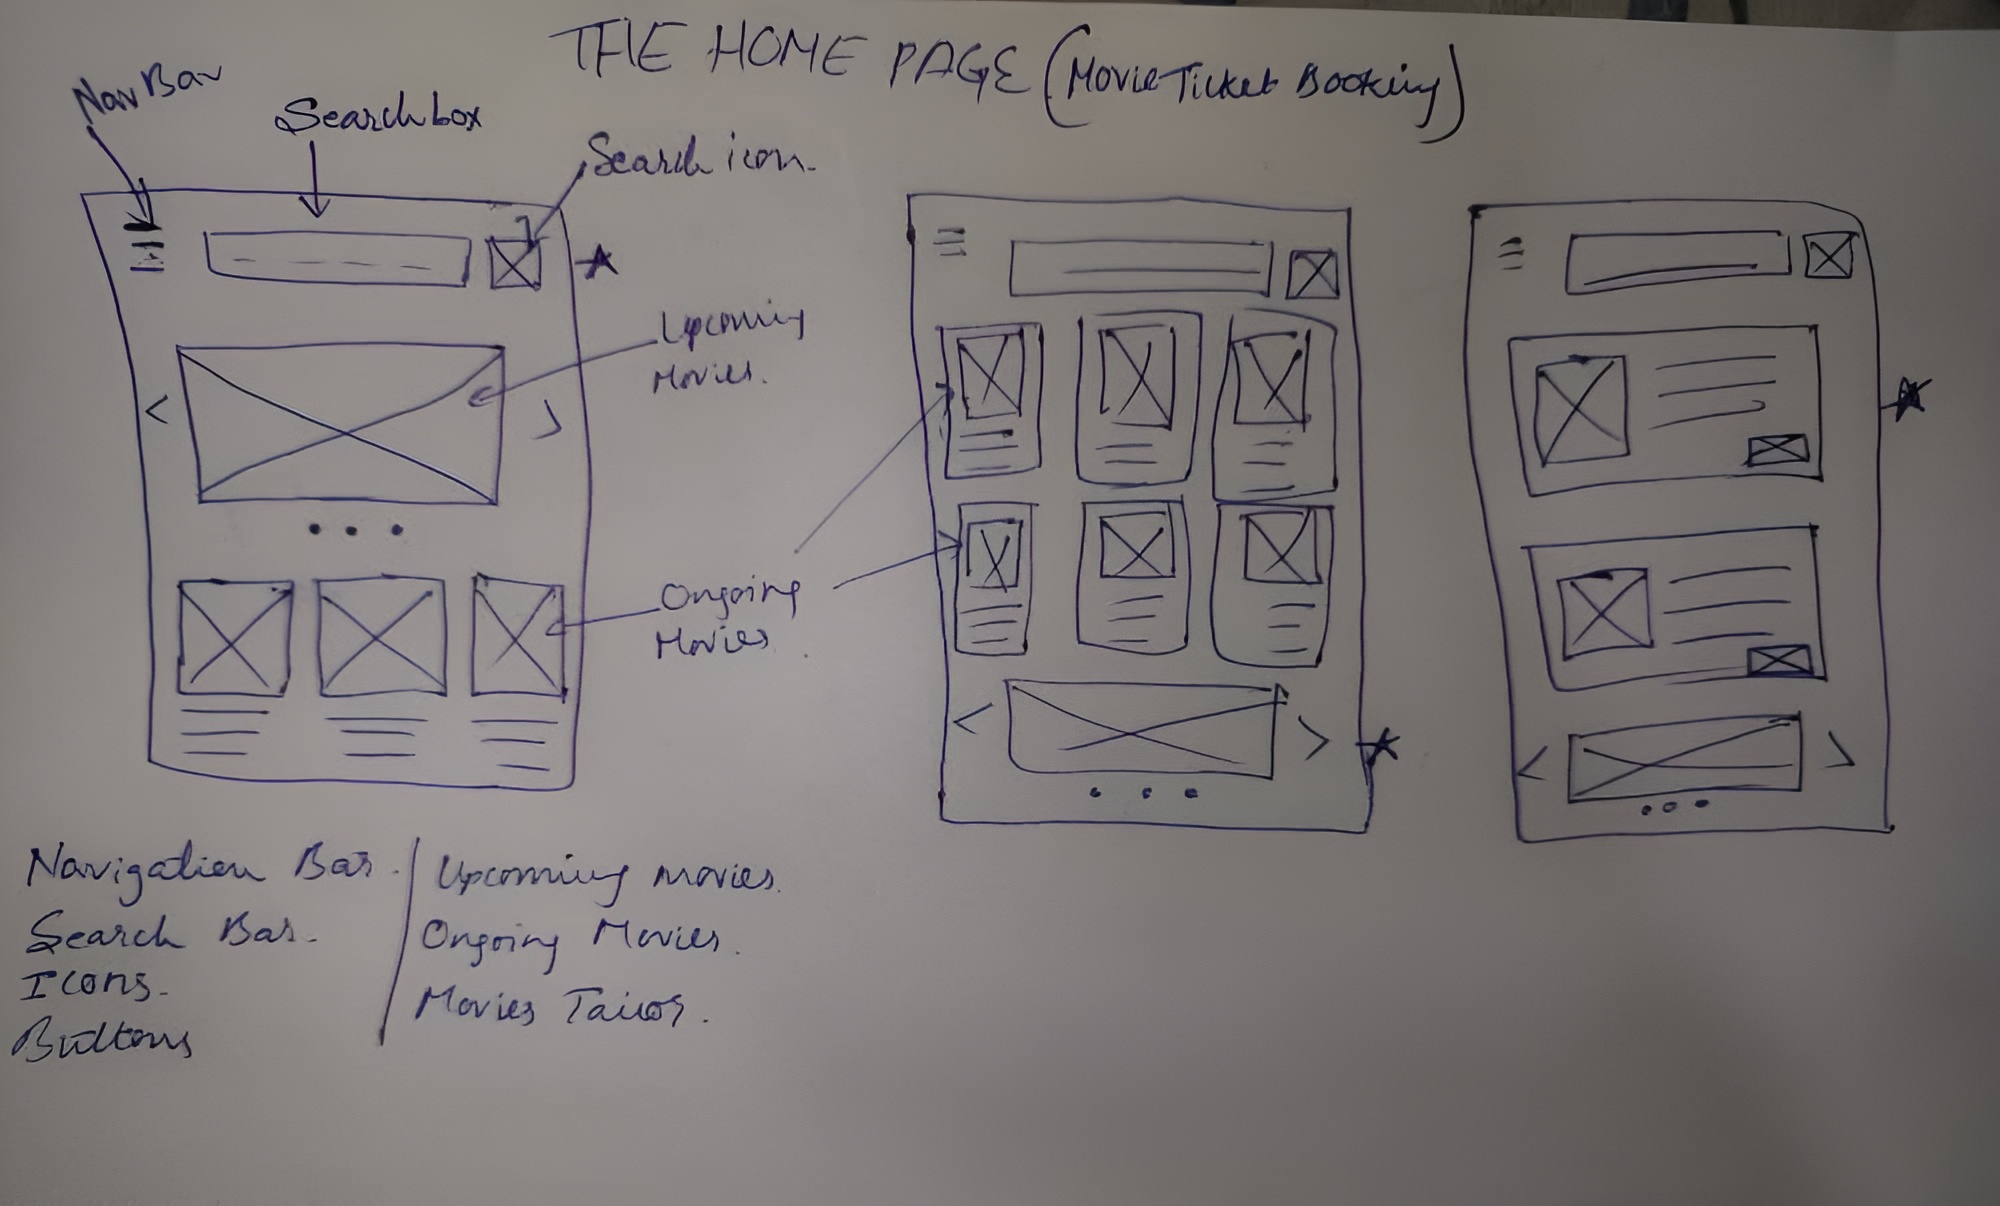 THE HOME PAGE (Movie Ticket Booking)
Nav Bar
Search box
Search icon.
Upcoming
Movies.
Ongoing
Movies.
Navigation Bar.
Search Bar.
Icons.
Buttons
Upcoming movies.
Ongoing Movies.
Movies